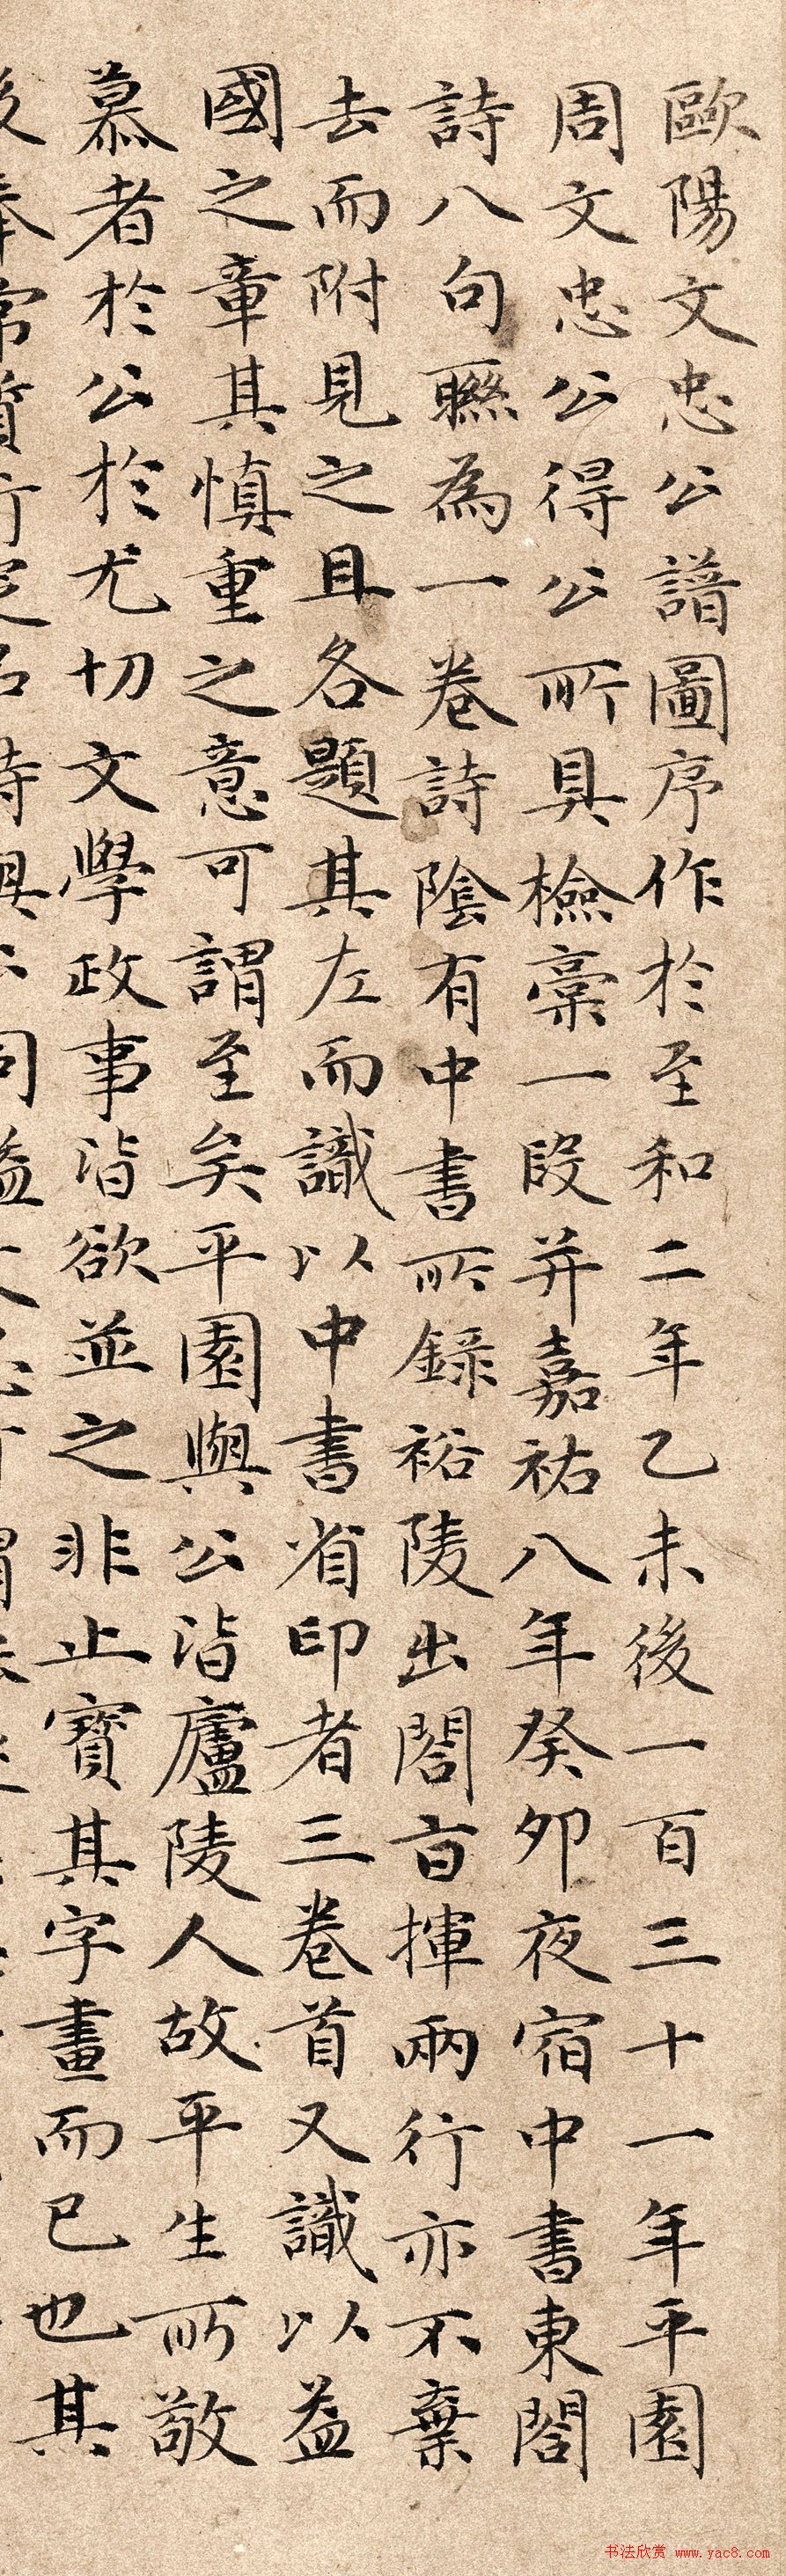 歐陽文忠公譜圖序作於至和二年乙未後一百三十一年平園
周文忠公得公所具檢稾一段并嘉祐八年癸卯夜宿中書東閤
詩八句聮為一卷詩陰有中書所錄裕陵出閤旨揮兩行亦不棄
去而附見之且各題其左而識以中書省印者三卷首又識以益
國之章其慎重之意可謂至矣平園與公皆廬陵人故平生所敬
慕者於公於尤切文學政事皆欲並之非止寳其字畫而已也其
书法欣赏 www.yac8.com